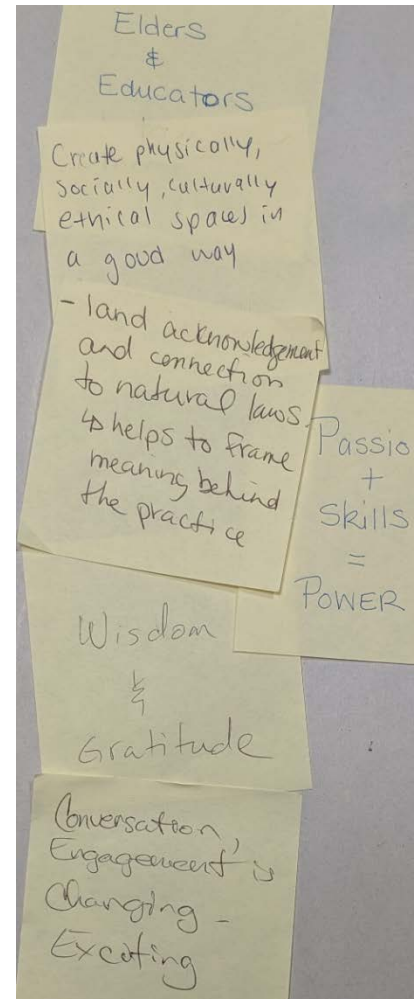 Elders
&
Educators
Create physically,
socially, culturally
ethical spaces in
a good way
- land acknowledgement
and connection
to natural laws.
↳ helps to frame
meaning behind
the practice
Passio
+
Skills
=
POWER
Wisdom
&
Gratitude
Conversation,
Engagement is
Changing -
Exciting